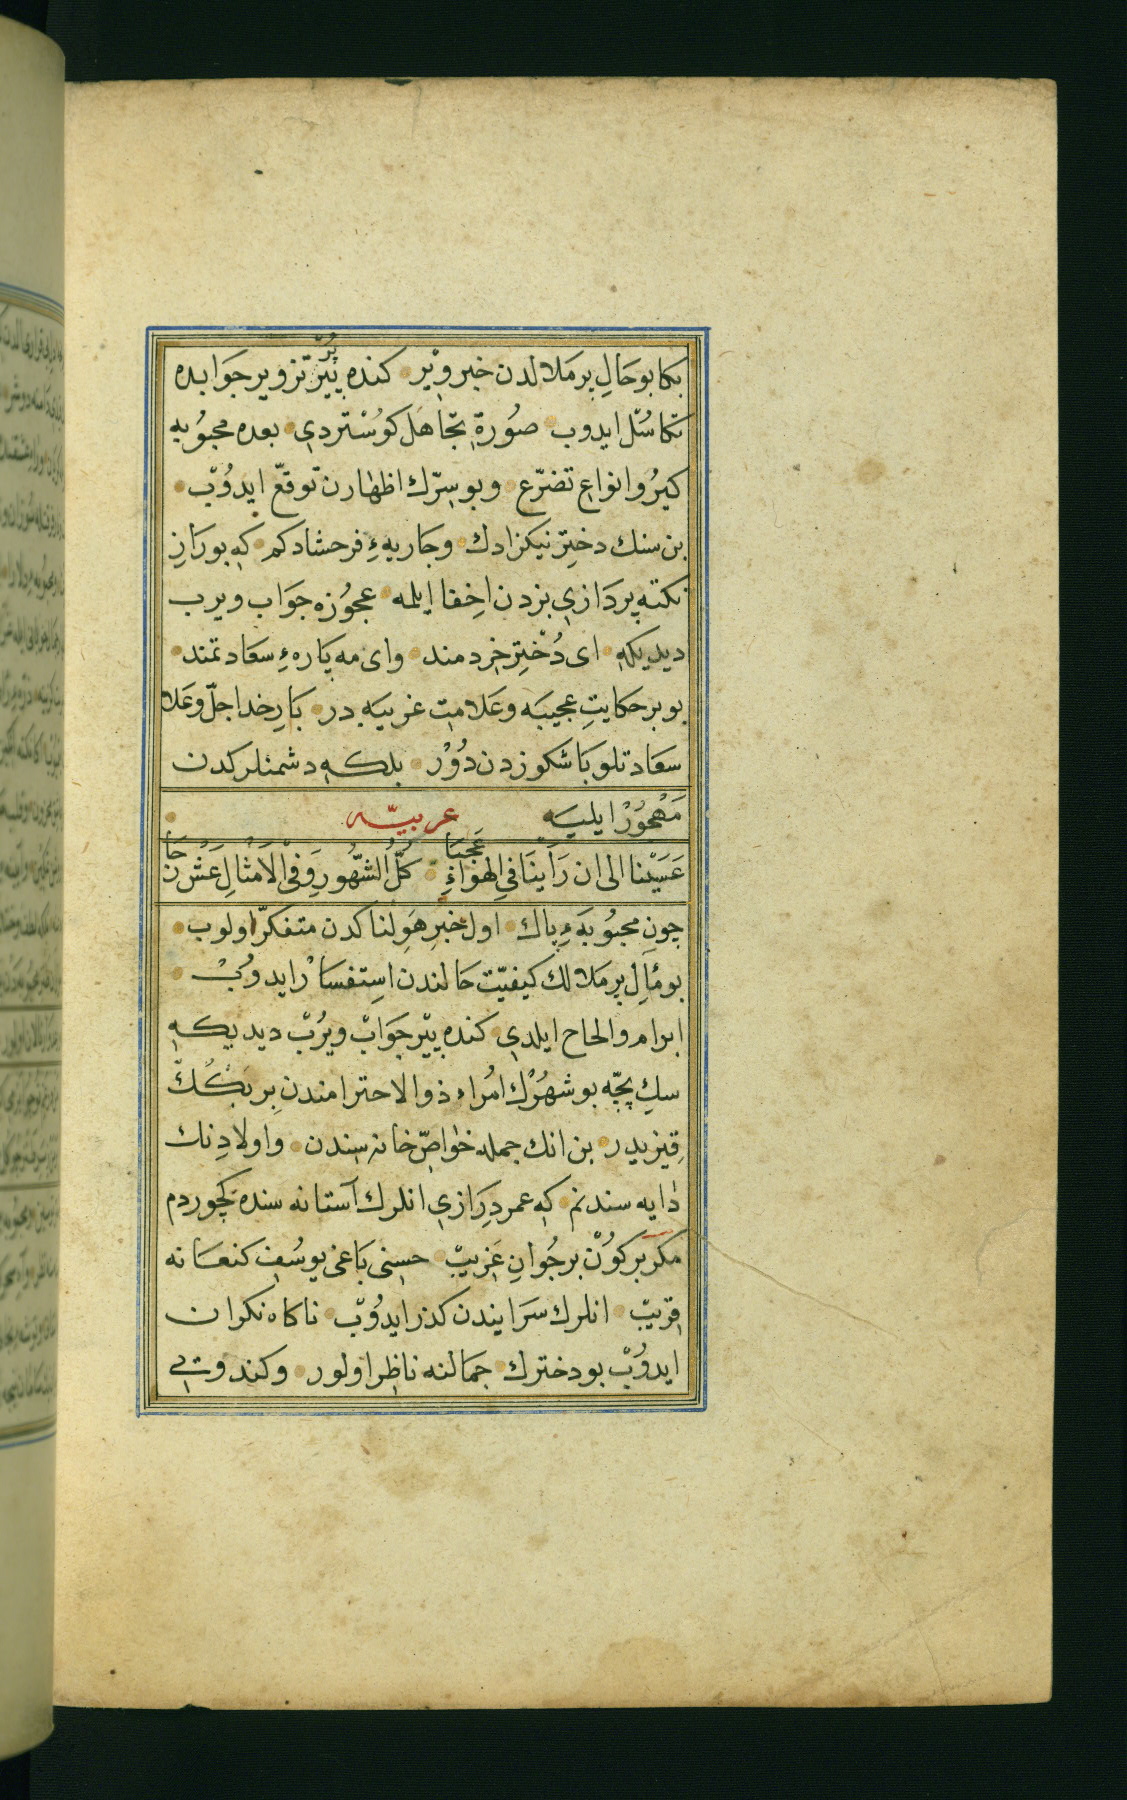 بكا بو حالِ برملا لدن خبر ويْر كنده پيْر پُر تزوير جوابده
تكاسُل ايدوب صُورةِ تجاهَل كوسْتردي بعده محبُوبه
كيرُو انواعِ تضرّع وبو سِرّك اظهارن توقّع ايدُوبْ
بن سنك دخترِ نيكزادك وجاريهءِ فرحشادكم كه بو رَازِ
نكته پردَازي بزدن اخِفا ايلمه عجوُزه جوَاب ويرب
ديديكه اى دُخْترِ خردمند واى مه پَارهءِ سعَادتمند
بو بر حكايتِ عجيبَه وعَلامتِ غريبَه در بَارِ خدا جلّ وعَلا
سعَادتلو بَاشكوزدن دُوْر بلكه دشمنلركدن
مَهْجوُرْ ايليَه عربيّه
عَسَيْنا الى ان رَاَينَا في الهوَاءِ عَجَبَا كلُّ الشّهُورِ وَفى الاَمْثالِ عَشْ رجَبَا
چون محبوُبهَءِ پاك اول خبرِ هَولناكدن متفكرّ اولوب
بو مَاٰلِ برملا لك كيفيّت حَالندن اسِتفسَارْ ايدوُبْ
ابرام والحاح ايلدي كنده پيْر جوَابْ ويرُبْ ديديكه
بو شهرُك امُراءِ ذوالاحترامندن بر بَكُكْ
قيزيدر بن انك جمله خواصّ خانه سندن واولادِنك
دايه سندنم كه عمر درَازي انلرك آستانه سنده كچوردم
مكر بر كوُنْ بر جُوانِ غَريبْ حسِنى بَاعْى يوسُفِ كنعَانه
قريبْ انلرك سَرَايندن كذر ايدُوبْ ناكاه نكران
ايدُوبْ بو دخترك جمَالنه ناظِر اولور وكندوتىٕ